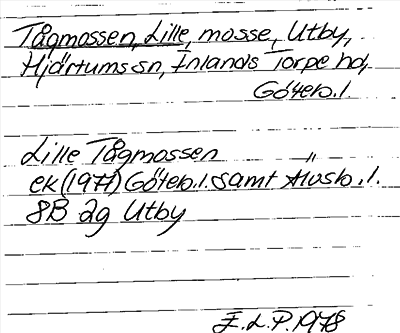 Tågmossen, Lille, mosse, Utby,
Hjärtums sn, Inlands Torpe hd,
Göteb. l.
Lille Tågmossen
ek (1977) Göteb. l. samt Älvsb. l.
8B 2g Utby
E.L.P. 1978